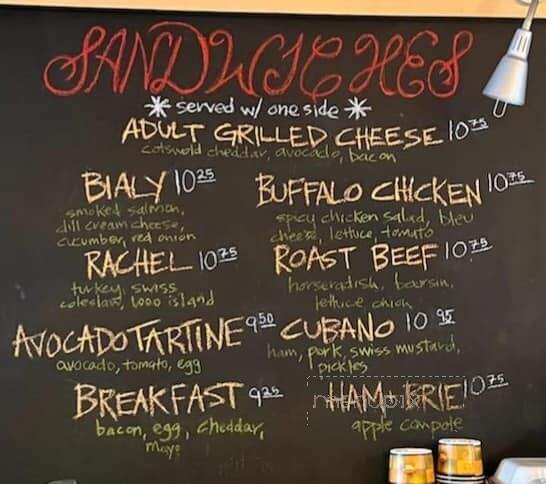 SANDWICHES
* served w/ one side *
ADULT GRILLED CHEESE 10 75
cotswold cheddar, avocado, bacon
BIALY 10 25
smoked salmon,
dill cream cheese,
cucumber, red onion
BUFFALO CHICKEN 10 75
spicy chicken salad, bleu
cheese, lettuce, tomato
RACHEL 10 75
turkey, swiss
coleslaw, 1000 island
ROAST BEEF 10 75
horseradish, boursin,
lettuce onion
AVOCADO TARTINE 9 50
avocado, tomato, egg
CUBANO 10 95
ham, pork, swiss mustard,
pickles
BREAKFAST 9 25
bacon, egg, cheddar,
mayo
HAM + BRIE 10 75
menupix
apple compote